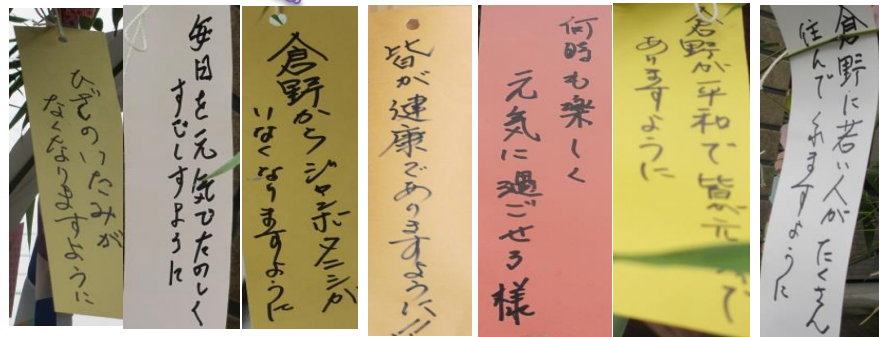 ひざのいたみが
なくなりますように
毎日を元気でたのしく
すごしすように
倉野からジャンボタニシが
いなくなりますように
皆が健康でありますように!!
何時も楽しく
元気に過ごせる様
倉野が平和で皆が元で
ありますように
倉野に若い人がたくさん
住んでくれますように